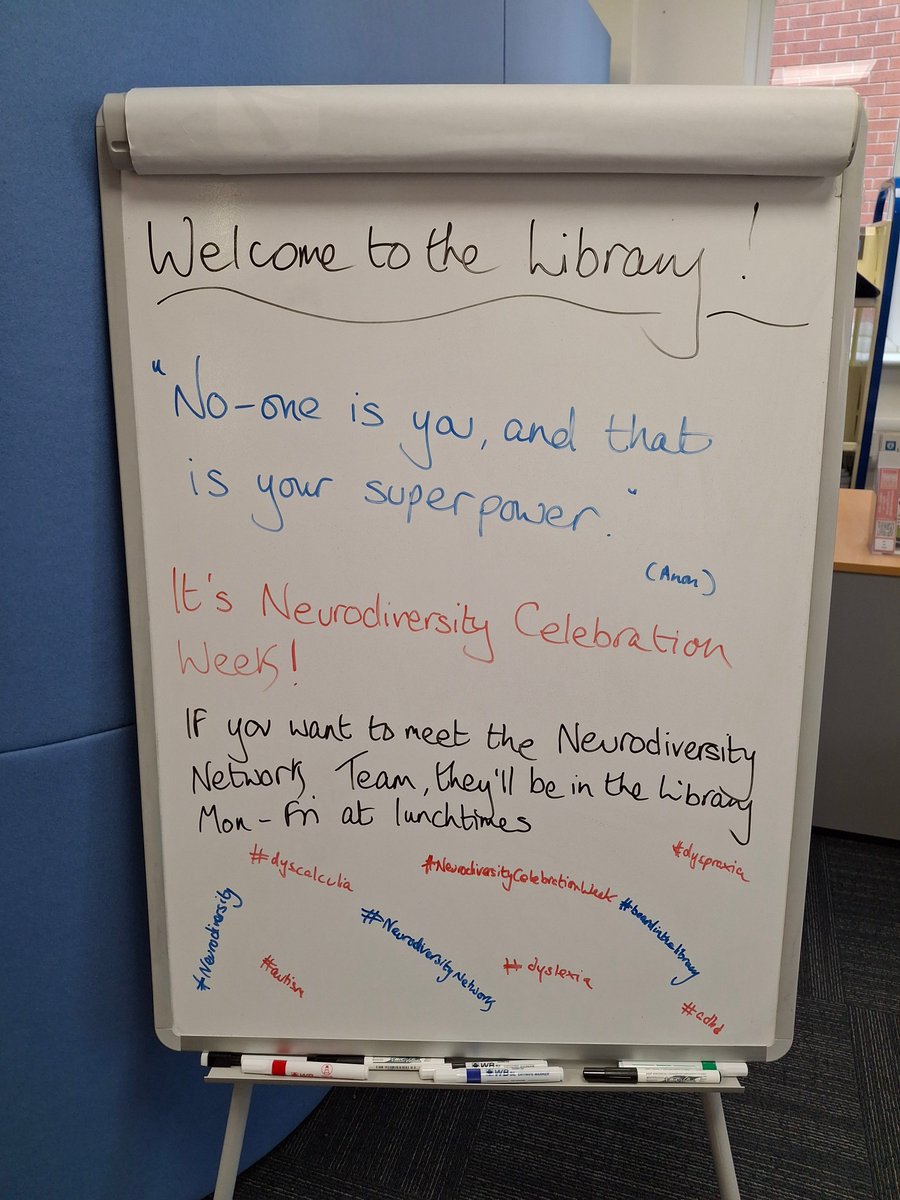 Welcome to the Library!
"No-one is you, and that
is your superpower."
(Anon)
It's Neurodiversity Celebration
Week!
IF you want to meet the Neurodiversity
Network Team, they'll be in the Library
Mon - Fri at lunchtimes
#dyscalculia
#NeurodiversityCelebrationWeek
#dyspraxia
#Neurodiversity
#autism
#NeurodiversityNetwork
#dyslexia
#adhd
WB